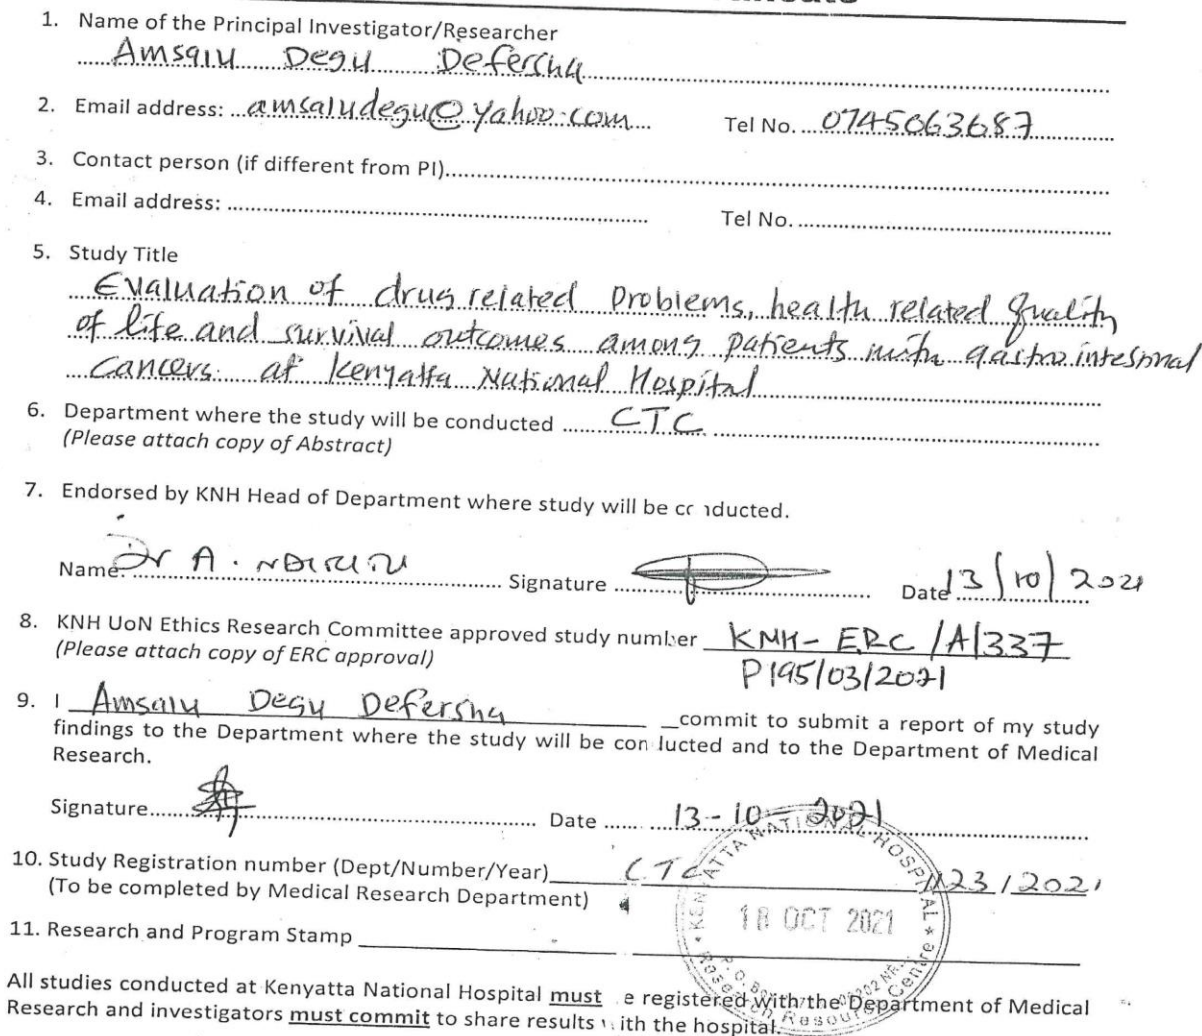 1. Name of the Principal Investigator/Researcher
Amsalu Degu Defersha
2. Email address: amsaludegu@yahoo.com Tel No. 0745063687
3. Contact person (if different from PI)
4. Email address: Tel No.
5. Study Title
Evaluation of drug related problems, health related quality
of life and survival outcomes among patients with gastrointestinal
cancers at Kenyatta National Hospital
6. Department where the study will be conducted CTC
(Please attach copy of Abstract)
7. Endorsed by KNH Head of Department where study will be conducted.
Name: Dr A. Signature Date 13/10/2021
8. KNH UoN Ethics Research Committee approved study number KNH-ERC/A/337
(Please attach copy of ERC approval) P195/03/2021
9. I Amsalu Degu Defersha commit to submit a report of my study
findings to the Department where the study will be conducted and to the Department of Medical
Research.
Signature Date 13-10-2021
10. Study Registration number (Dept/Number/Year) CTC /123/2021
(To be completed by Medical Research Department)
KENYATTA NATIONAL HOSPITAL
18 OCT 2021
Research Resource Centre
11. Research and Program Stamp
All studies conducted at Kenyatta National Hospital must be registered with the Department of Medical
Research and investigators must commit to share results with the hospital.